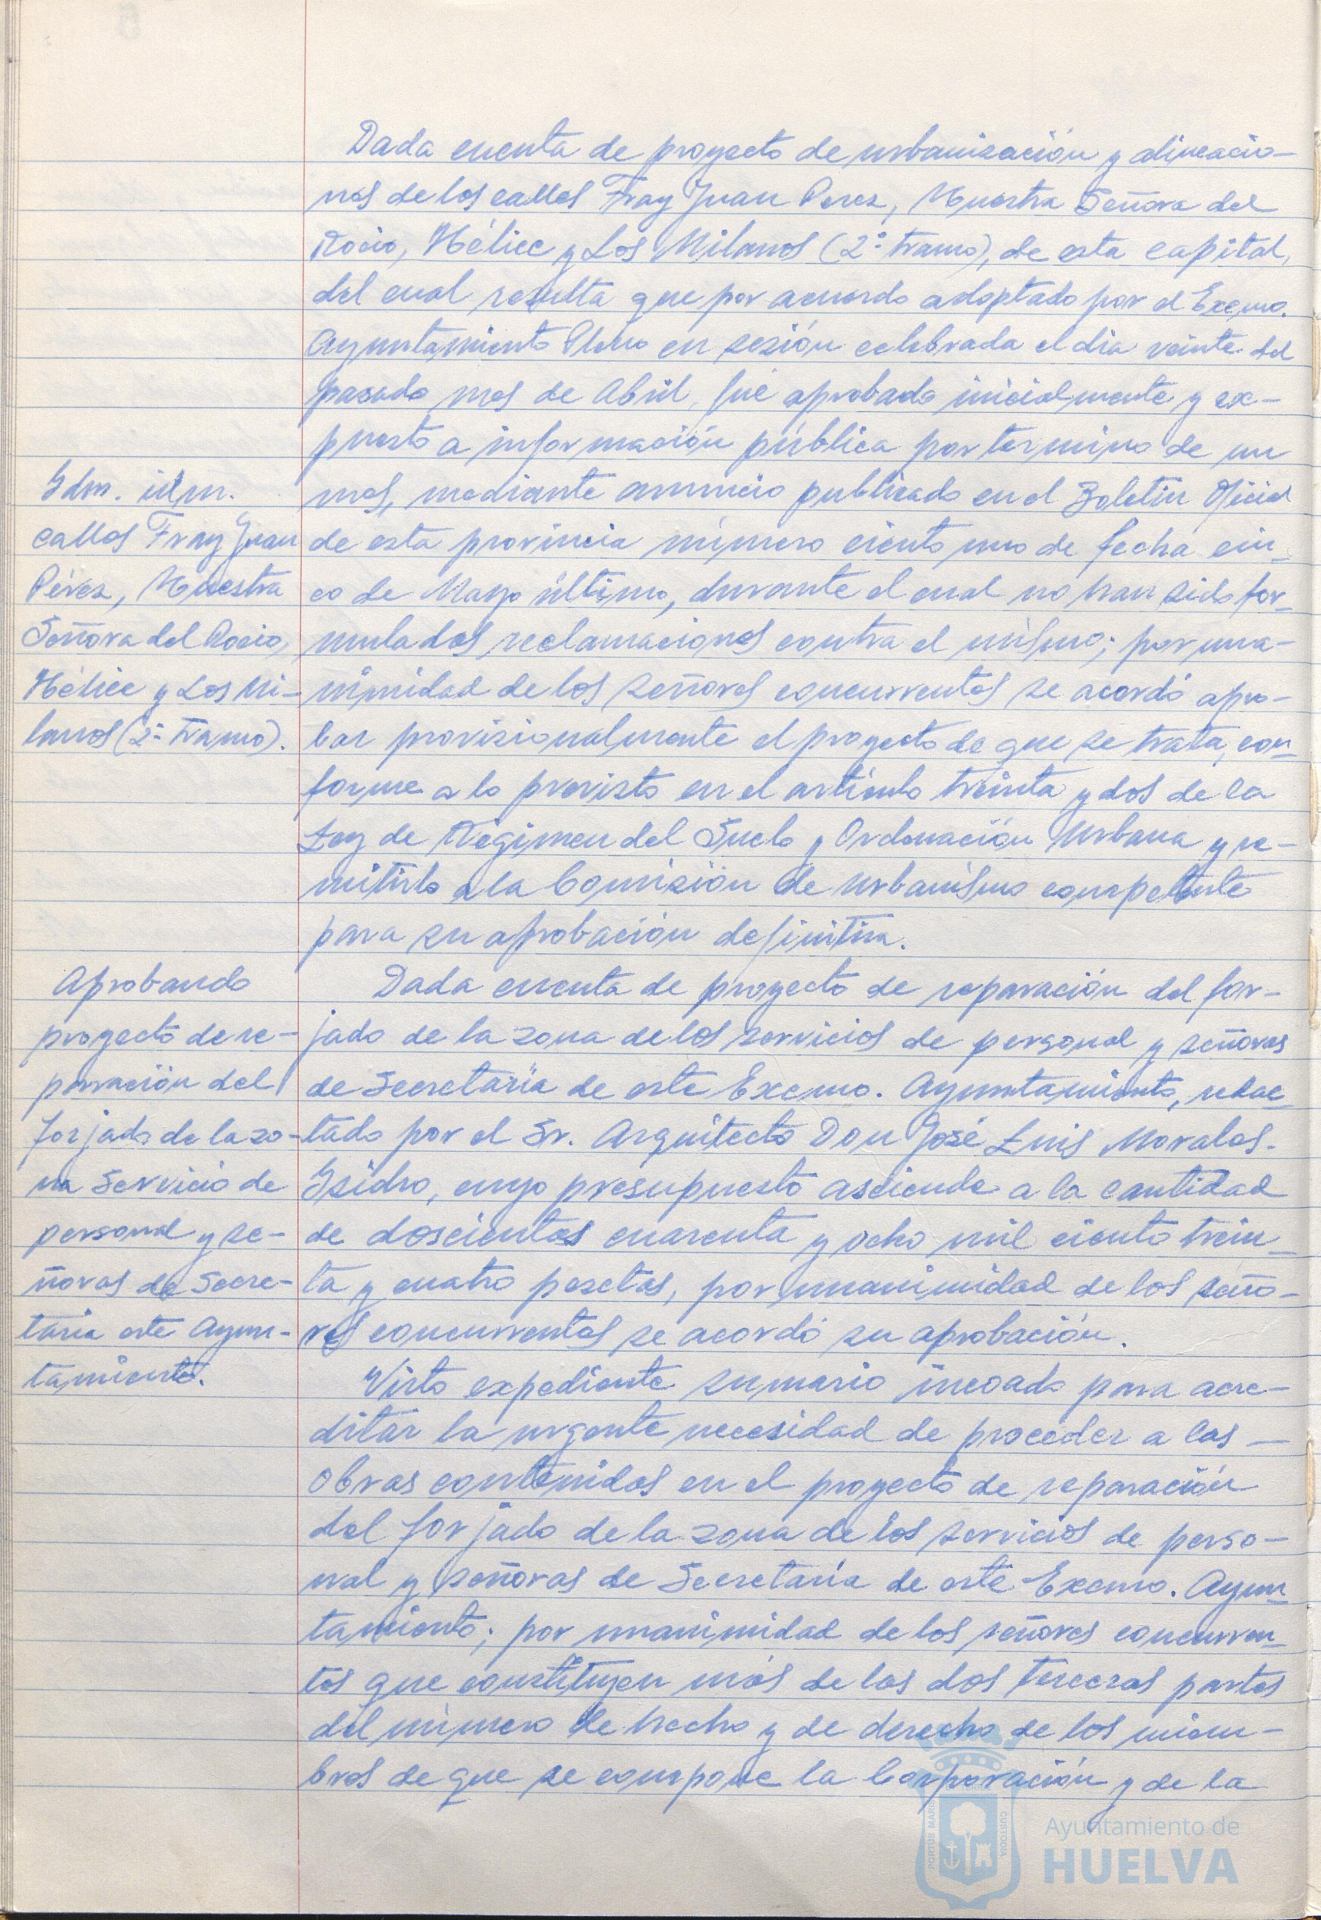 Dada cuenta de proyecto de urbanización y alineacio-
nes de los calles Fray Juan Perez, Nuestra Señora del
Rocio, Hélice y Los Milanos (2º tramo), de esta capital,
del cual resulta que por acuerdo adoptado por el Excmo.
Ayuntamiento Pleno en sesión celebrada el dia veinte del
pasado mes de Abril, fué aprobado inicialmente y ex-
puesto a información pública por termino de un
mes, mediante anuncio publicado en el Boletin Oficial
de esta provincia número ciento uno de fecha cin-
co de Mayo último, durante el cual no han sido for-
muladas reclamaciones contra el mismo; por una-
nimidad de los señores concurrentes se acordó apro-
bar provisionalmente el proyecto de que se trata, con-
forme a lo previsto en el artículo treinta y dos de la
Ley de Régimen del Suelo y Ordenación Urbana y re-
mitirlo a la Comisión de Urbanismo competente
para su aprobación definitiva.
Idm. idm.
calles Fray Juan
Pérez, Nuestra
Señora del Rocio,
Hélice y Los Mi-
lanos (2º tramo).
Dada cuenta de proyecto de reparación del for-
jado de la zona de los servicios de personal y señoras
de Secretaría de este Excmo. Ayuntamiento, redac-
tado por el Sr. Arquitecto Don José Luis Morales
Isidro, cuyo presupuesto asciende a la cantidad
de doscientas cuarenta y ocho mil ciento trein-
ta y cuatro pesetas, por unanimidad de los seño-
res concurrentes se acordó su aprobación.
Aprobando
proyecto de re-
paración del
forjado de la zo-
na Servicio de
personal y se-
ñoras de Secre-
taria este Ayun-
tamiento.
Visto expediente sumario incoado para acre-
ditar la urgente necesidad de proceder a las
obras contenidas en el proyecto de reparación
del forjado de la zona de los servicios de perso-
nal y señoras de Secretaría de este Excmo. Ayun-
tamiento; por unanimidad de los señores concurren-
tes que constituyen más de las dos terceras partes
del número de hecho y de derecho de los miem-
bros de que se compone la Corporación y de la
PORTUS MARIS
CUSTODIA
Ayuntamiento de
HUELVA